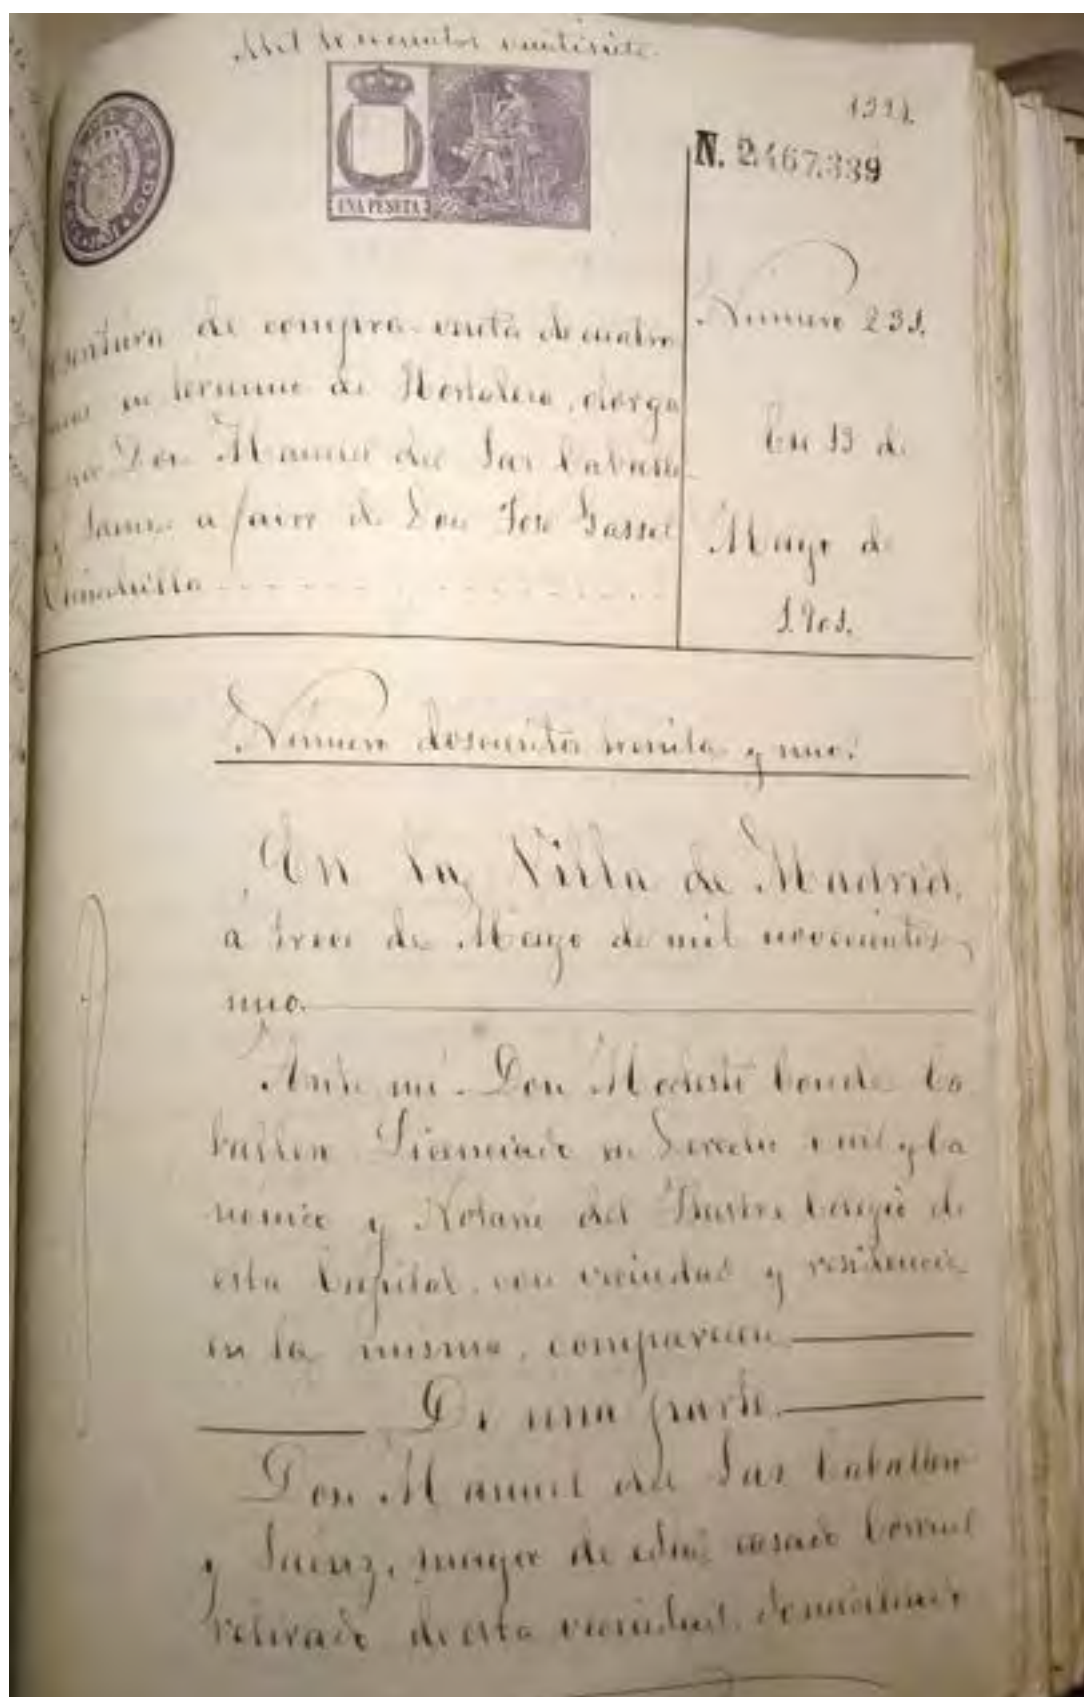 Mil doscientos veintisiete
1227
N. 2.467.339
UNA PESETA
Número 231.
En 13 de
Mayo de
1901.
de compra-venta de cuatro
en término de Hortaleza, otorga
Don Manuel del Saz Caballero
y Sainz a favor de Don José Gasset
Número doscientos treinta y uno.
En la Villa de Madrid,
a trece de Mayo de mil novecientos
uno.
Ante mi Don Modesto Conde Ca
ballero Licenciado en Derecho civil y Ca
nonico y Notario del Ilustre Colegio de
esta Capital, con vecindad y residencia
en la misma, comparecen
De una parte.
Don Manuel del Saz Caballero
y Sainz, mayor de edad casado
retirado de esta vecindad, domiciliado